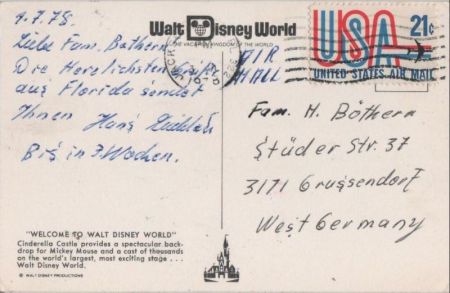 9.7.78.
Liebe Fam. Bothern
Die Herzlichsten
aus Florida sendet
Ihnen Hans
Bis in 3 Wochen.
Walt Disney World
THE VACATION KINGDOM OF THE WORLD
AIR
MAIL
USA 21c
UNITED STATES AIR MAIL
Fam. H. Böthern
Stüder Str. 37
3171 Grussendorf
West Germany
"WELCOME TO WALT DISNEY WORLD"
Cinderella Castle provides a spectacular back-
drop for Mickey Mouse and a cast of thousands
on the world's largest, most exciting stage . . .
Walt Disney World.
© WALT DISNEY PRODUCTIONS